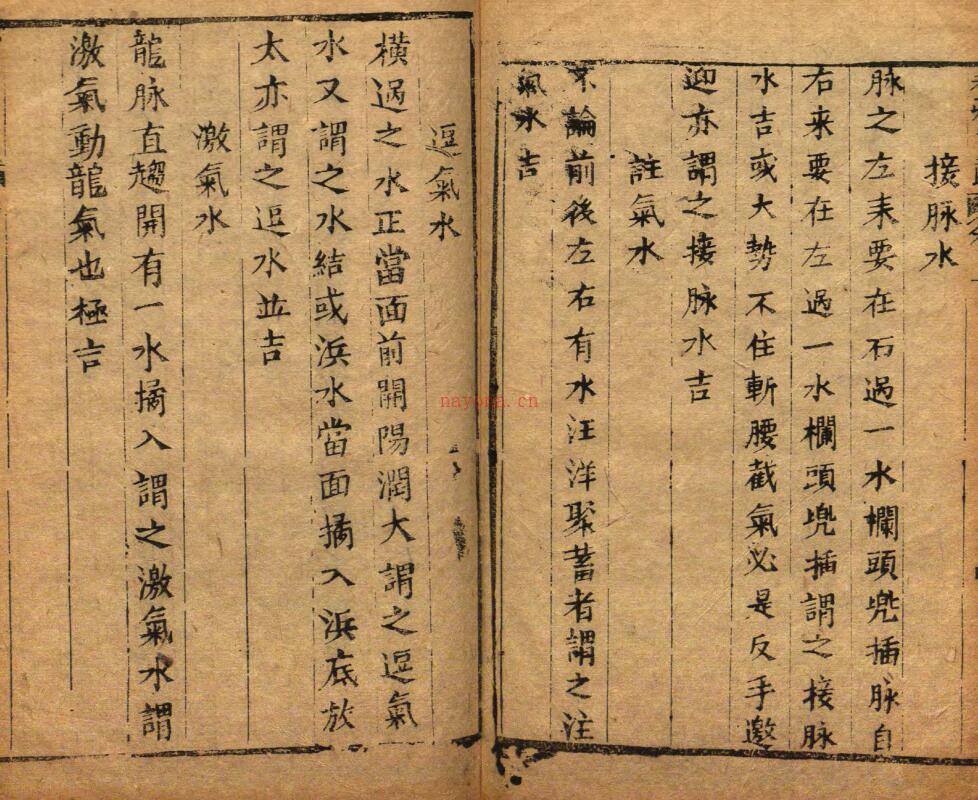 接脉水
脉之左来要在石過一水欄頭兜插脉自
右来要在左過一水欄頭兜插謂之接脉
水吉或大勢不住斬腰截氣必是反手邀
迎亦謂之接脉水吉
註氣水
不論前後左右有水汪洋聚蓄者謂之注
氣水吉
逗氣水
橫過之水正當面前開陽潤大謂之逗氣
水又謂之水結或浜水當面插入浜底放
太亦謂之逗水並吉
激氣水
龍脉直趨開有一水插入謂之激氣水謂
激氣動龍氣也極吉
nayona.cn